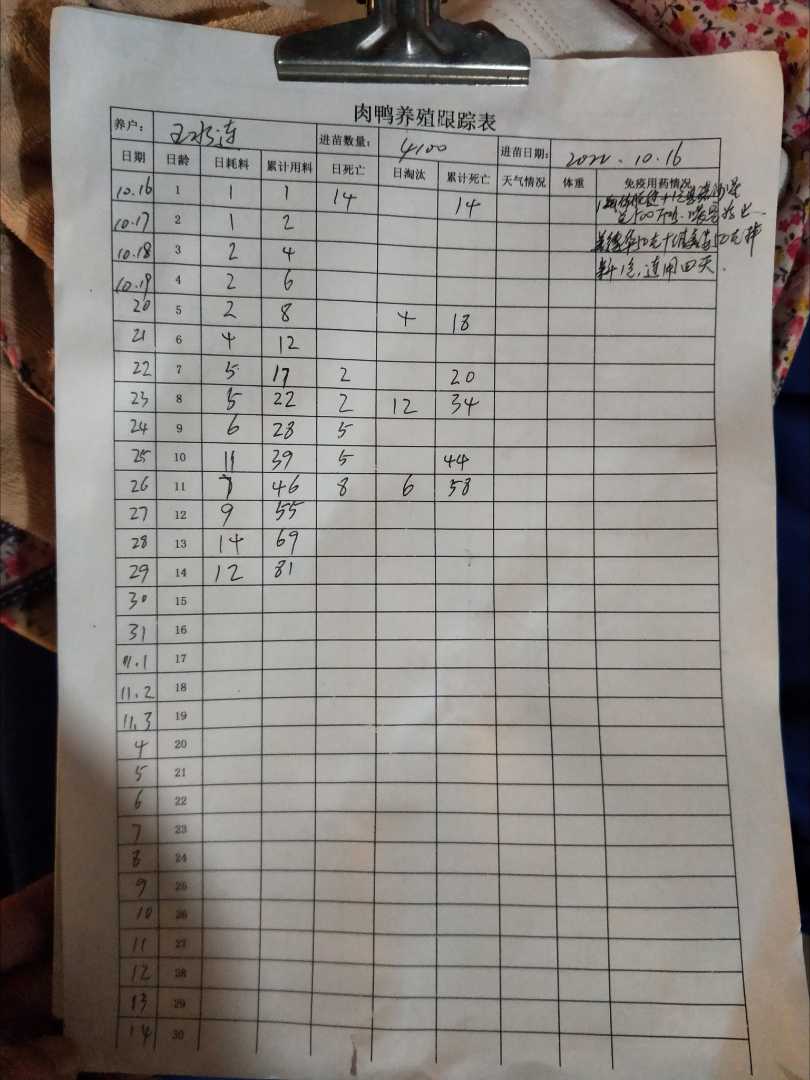 肉鸭养殖跟踪表
养户： 王水连 进苗数量： 4100 进苗日期： 2022.10.16
日期 日龄 日耗料 累计用料 日死亡 日淘汰 累计死亡 天气情况 体重 免疫用药情况
10.16 1 1 1 14 14
10.17 2 1 2
10.18 3 2 4
10.19 4 2 6 料1包,连用四天.
20 5 2 8 4 18
21 6 4 12
22 7 5 17 2 20
23 8 5 22 2 12 34
24 9 6 28 5
25 10 11 39 5 44
26 11 7 46 8 6 58
27 12 9 55
28 13 14 69
29 14 12 81
30 15
31 16
11.1 17
11.2 18
11.3 19
4 20
5 21
6 22
7 23
8 24
9 25
10 26
11 27
12 28
13 29
14 30